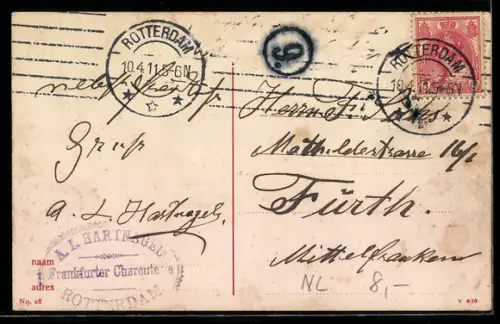 ROTTERDAM
10.4.11.5-6N
ROTTERDAM
10.4.11.5-6N
9.
Gruß
A. L. Hartnagel
A. L. HARTNAGEL
Frankfurter Charcuterie
ROTTERDAM
naam
adres
No. 28
Herrn
Mathildestrasse 16/0
Fürth.
Mittelfranken
NL 8,-
V 4/10